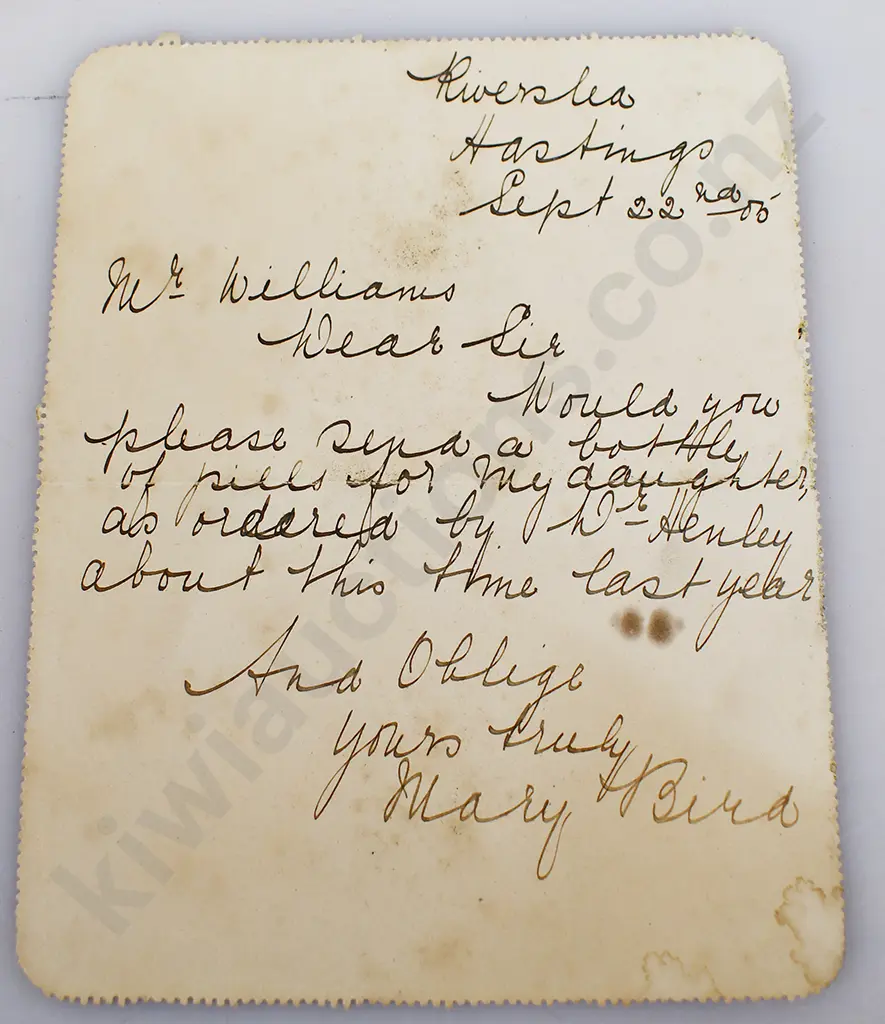 Riverslea
Hastings
Sept 22nd 05
Mr Williams
Dear Sir
Would you
please send a bottle
of pills for my daughter,
as ordered by Dr Henley
about this time last year
And Oblige
Yours truly
Mary Bird
kiwiauctions.co.nz